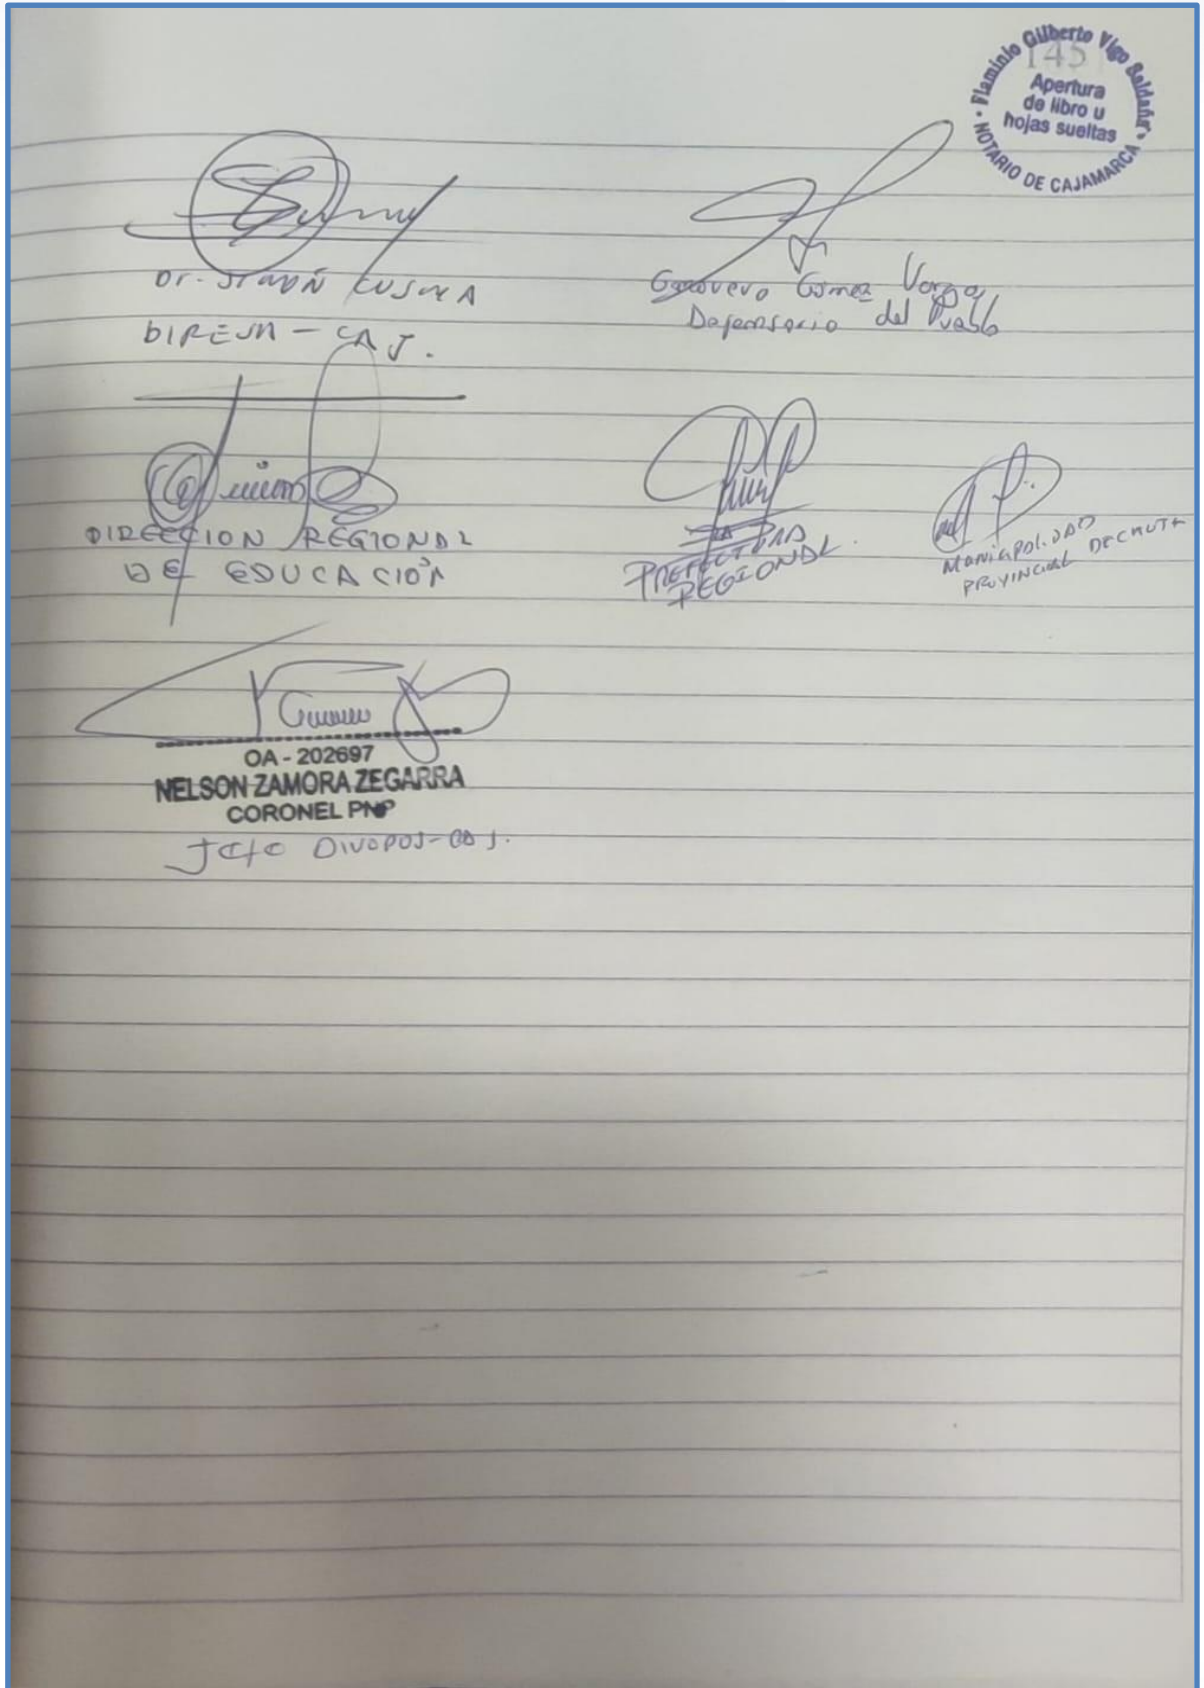 Flaminio Gilberto Vigo Saldaña
145
Apertura
de libro u
hojas sueltas
NOTARIO DE CAJAMARCA
Dr.
DIRESA - CAJ.
Genovevo Gómez Vargas
Defensoría del Pueblo
DIRECCION REGIONAL
DE EDUCACIÓN
PREFECTURA
REGIONAL
MUNICIPALIDAD
PROVINCIAL DE CHOTA
OA - 202697
NELSON ZAMORA ZEGARRA
CORONEL PNP
DIVOPUS - CAJ.